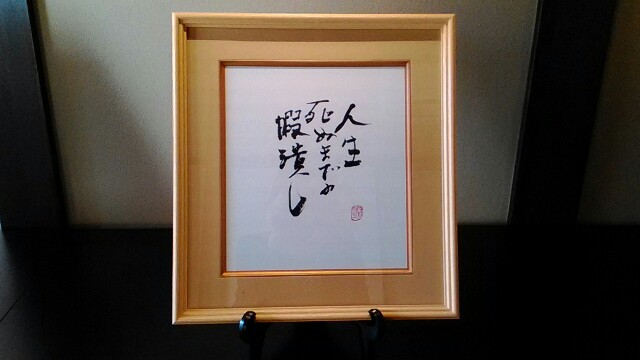 人生
死ぬまでの
暇潰し